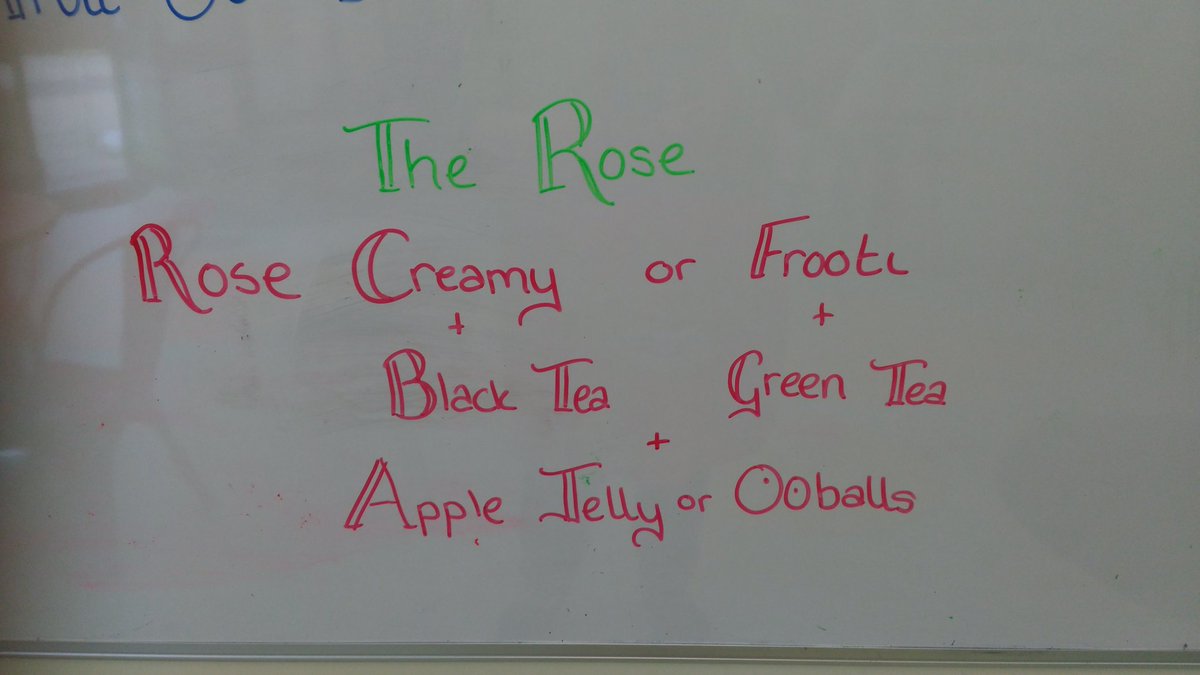 The Rose
Rose Creamy or Frooti
+ +
Black Tea Green Tea
+
Apple Jelly or Ooballs